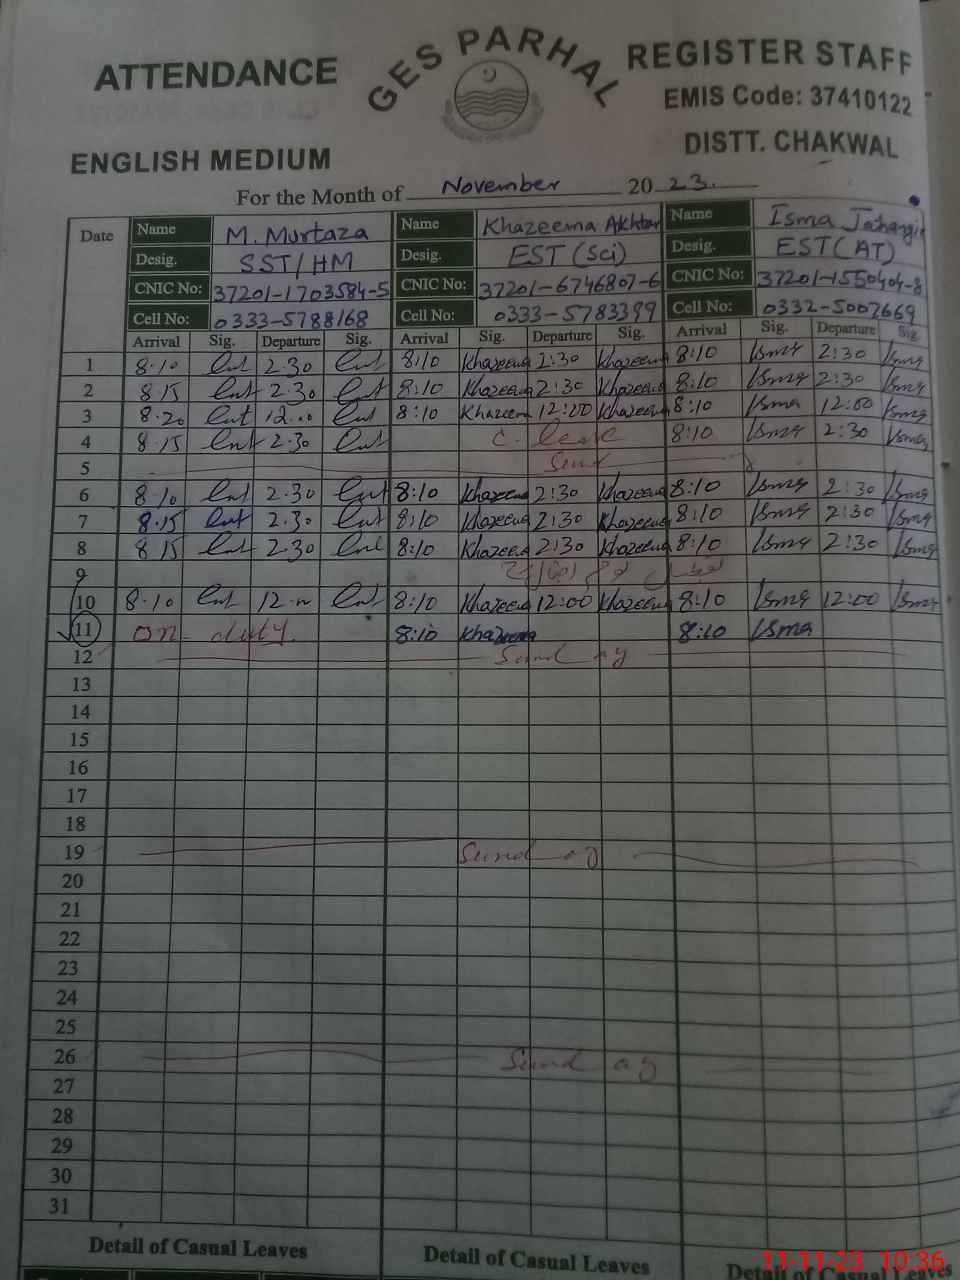 GES PARHAL
ATTENDANCE REGISTER STAFF
EMIS Code: 37410122
ENGLISH MEDIUM DISTT. CHAKWAL
For the Month of November 2023.
Date Name M. Murtaza Name Khazeema Akhtar Name Isma Jahangir
Desig. SST/HM Desig. EST (Sci) Desig. EST (AT)
CNIC No: 37201-1703584-5 CNIC No: 37201-6746807-6 CNIC No: 37201-1550404-8
Cell No: 0333-5788168 Cell No: 0333-5783399 Cell No: 0332-5007669
Arrival Sig. Departure Sig. Arrival Sig. Departure Sig. Arrival Sig. Departure Sig
1 8.10 2.30 8:10 Khazeema 2:30 Khazeema 8:10 Isma 2:30 Isma
2 8.15 2.30 8:10 Khazeema 2:30 Khazeema 8:10 Isma 2:30 Isma
3 8.20 12.00 8:10 Khazeem 12:00 Khazeema 8:10 Isma 12:00 Isma
4 8.15 2.30 C. leave 8:10 Isma 2:30 Isma
5
6 8.10 2.30 8:10 Khazeema 2:30 Khazeema 8:10 Isma 2:30 Isma
7 8.15 2.30 8:10 Khazeema 2:30 Khazeema 8:10 Isma 2:30 Isma
8 8.15 2.30 8:10 Khazeema 2:30 Khazeema 8:10 Isma 2:30 Isma
9
10 8.10 8:10 Khazeema 12:00 Khazeema 8:10 Isma 12:00 Isma
11 on duty. 8:10 Khazeema 8:10 Isma
12 Sunday
13
14
15
16
17
18
19 Sunday
20
21
22
23
24
25
26 Sunday
27
28
29
30
31
Detail of Casual Leaves Detail of Casual Leaves Detail of Casual Leaves
11-11-23 10:36